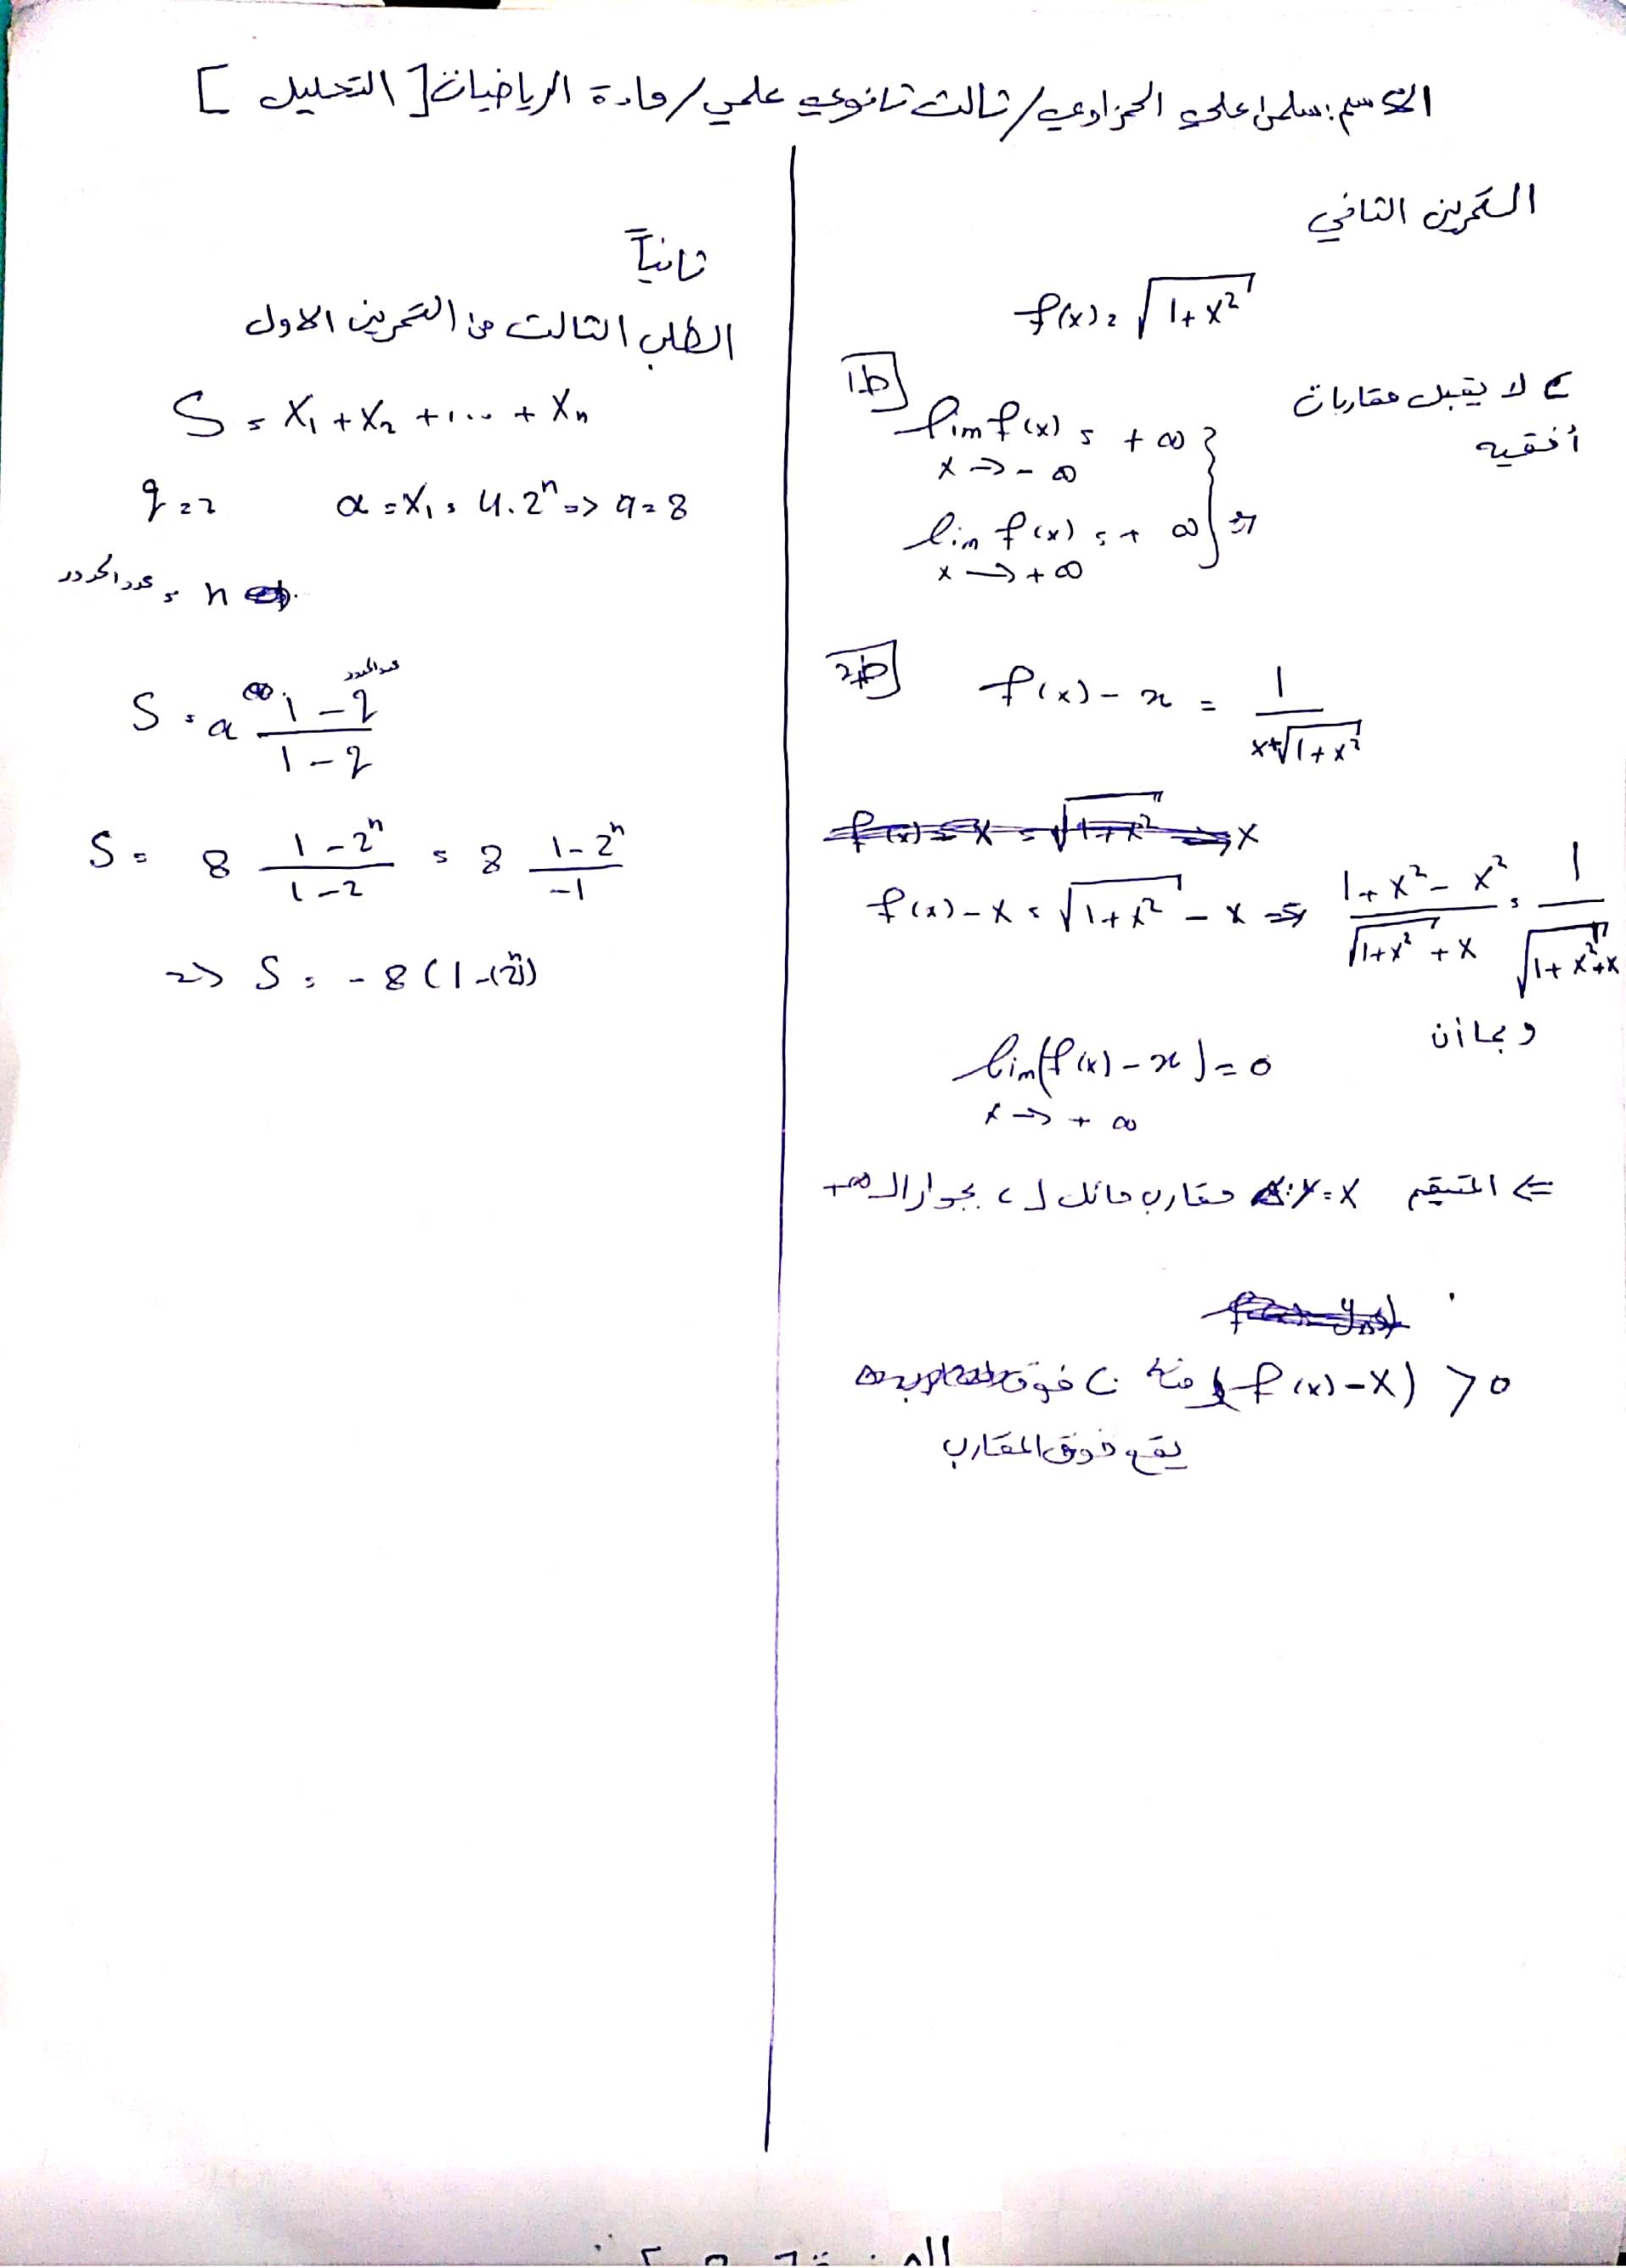 الاسم: سلمى علي الحزاوي / ثالث ثانوي علمي / مادة الرياضيات [التحليل]
التمرين الثاني
f(x) = √(1+x²)
ط1
lim f(x) = +∞
x → -∞
lim f(x) = +∞
x → +∞
⇒ C لا يقبل مقاربات
أفقيه
ط2
f(x) - x = 1 / (x+√(1+x²))
f(x) - x = √(1+x²) - x ⇒ (1+x²-x²) / (√(1+x²) + x) = 1 / (√(1+x²)+x)
وبما أن
lim(f(x) - x) = 0
x → +∞
⇐ المستقيم y = x مقارب مائل لـ C بجوار الـ +∞
(f(x) - x) > 0 منه C فوق
يقع فوق المقارب
ثانياً
الطلب الثالث من التمرين الاول
S = x₁ + x₂ + ... + xₙ
q = 2 a = x₁ = 4.2ⁿ => a = 8
n = عدد الحدود
S = a (1 - q^عدد الحدود) / (1 - q)
S = 8 (1-2ⁿ)/(1-2) = 8 (1-2ⁿ)/(-1)
=> S = -8(1-(2)ⁿ)